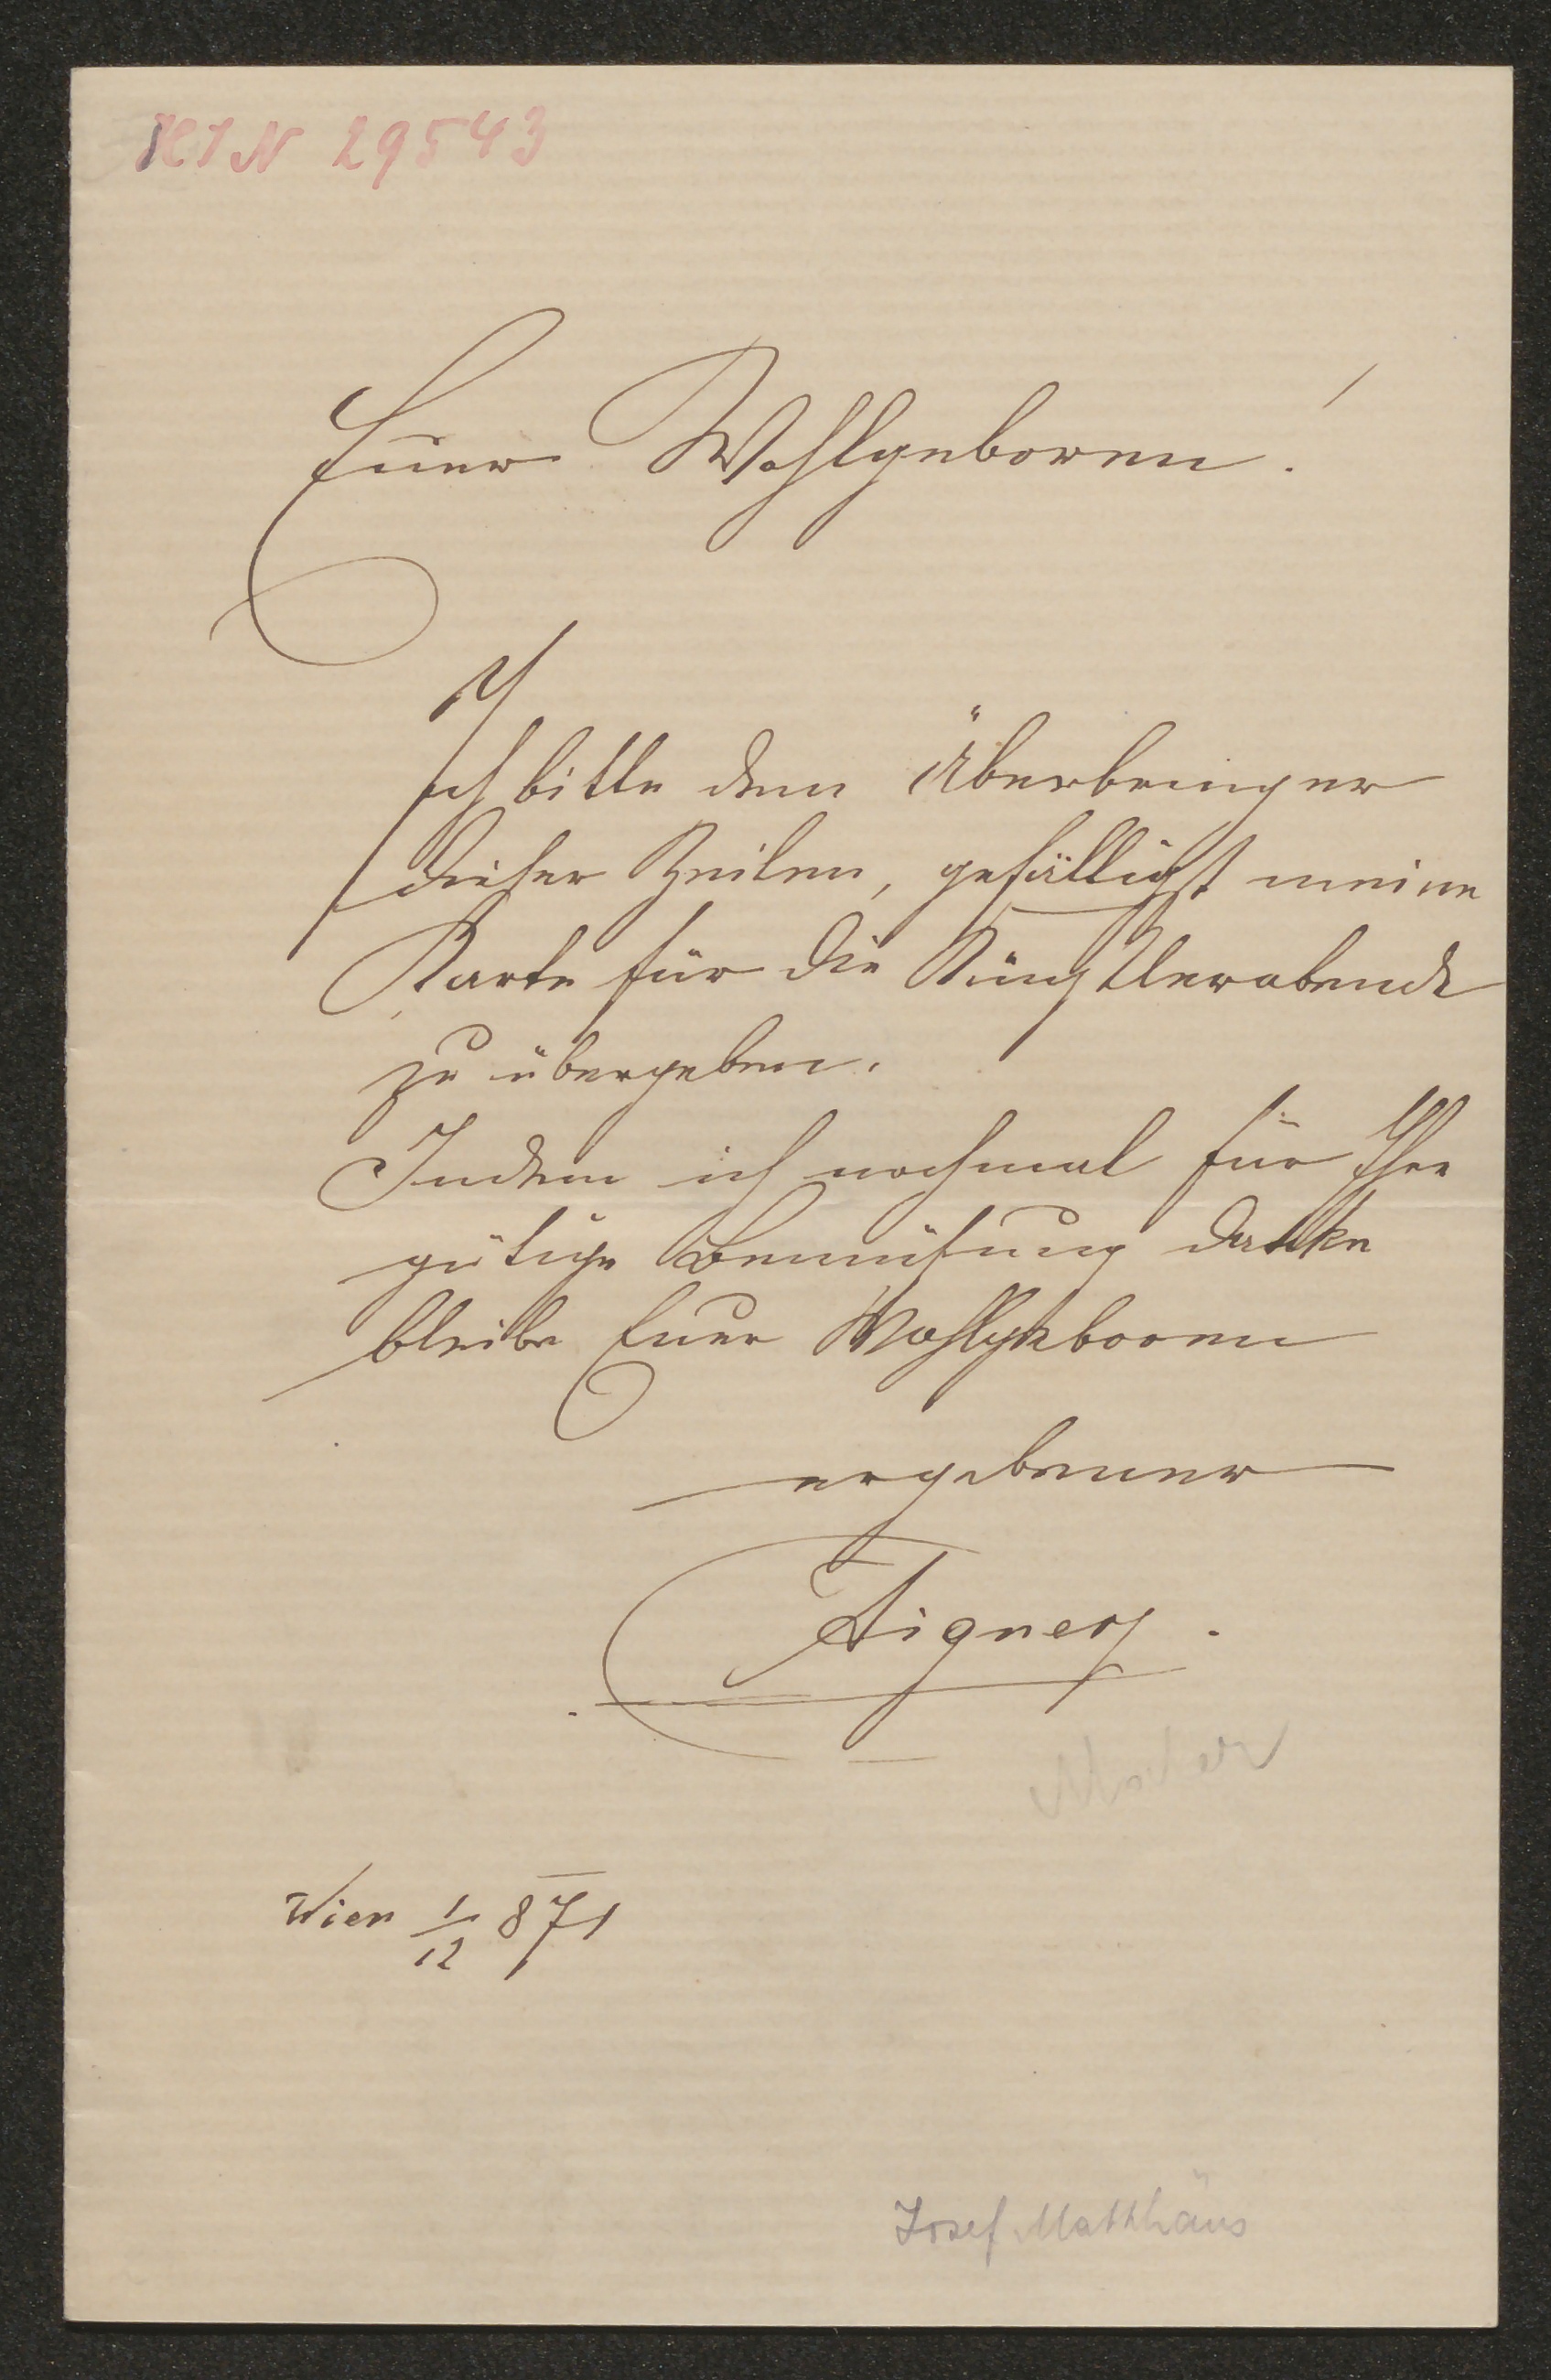 HIN 29543
Euer Wohlgeboren!
Ich bitte dem Überbringer
dieser Zeilen, gefälligst meine
Karte für die Künstlerabende
zu übergeben.
Indem ich nochmal für Ihre
gütige Bemühung danke
bleibe Euer Wohlgeboren
ergebener
Aigner.
Maler
Wien 1/12 871
Josef Matthäus